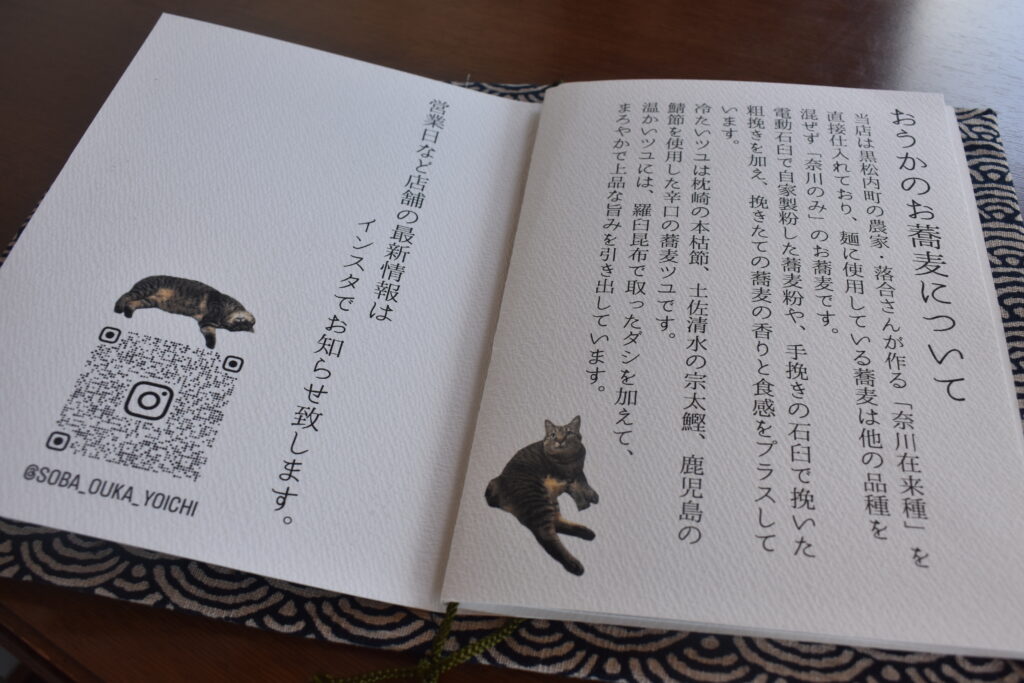 おうかのお蕎麦について
当店は黒松内町の農家・落合さんが作る「奈川在来種」を
直接仕入れており、麺に使用している蕎麦は他の品種を
混ぜず「奈川のみ」のお蕎麦です。
電動石臼で自家製粉した蕎麦粉や、手挽きの石臼で挽いた
粗挽きを加え、挽きたての蕎麦の香りと食感をプラスして
います。
冷たいツユは枕崎の本枯節、土佐清水の宗太鰹、鹿児島の
鯖節を使用した辛口の蕎麦ツユです。
温かいツユには、羅臼昆布で取ったダシを加えて、
まろやかで上品な旨みを引き出しています。
営業日など店舗の最新情報は
インスタでお知らせ致します。
@SOBA_OUKA_YOICHI